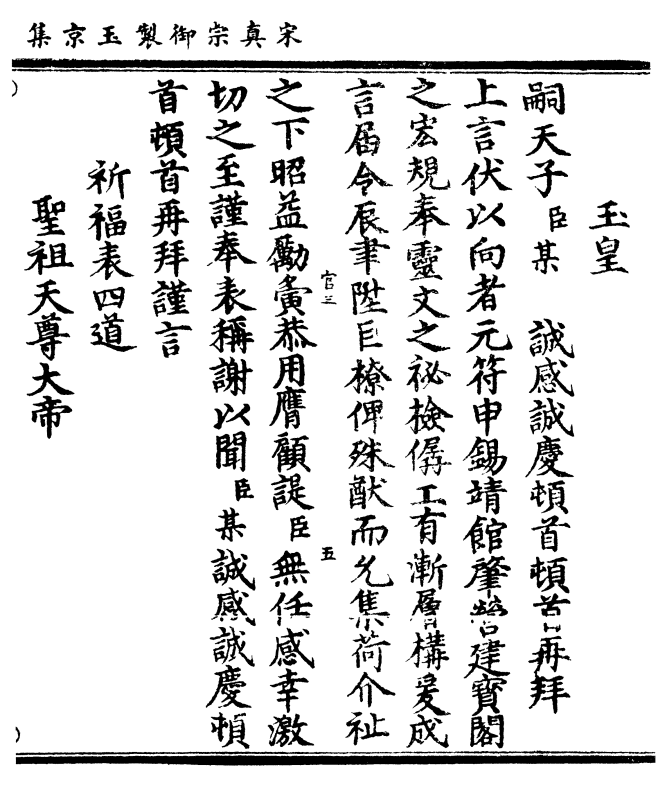 宋真宗御製玉京集
玉皇
嗣天子臣某 誠感誠慶頓首頓首再拜
上言伏以向者元符申錫靖館肇營建寶閣
之宏規奉靈文之祕檢僝工有漸層構爰成
言屆令辰聿陞巨橑俾殊猷而允集荷介祉
之下昭益勵夤恭用膺顧諟臣無任感幸激
切之至謹奉表稱謝以聞臣某誠感誠慶頓
首頓首再拜謹言
祈福表四道
聖祖天尊大帝
官三
五